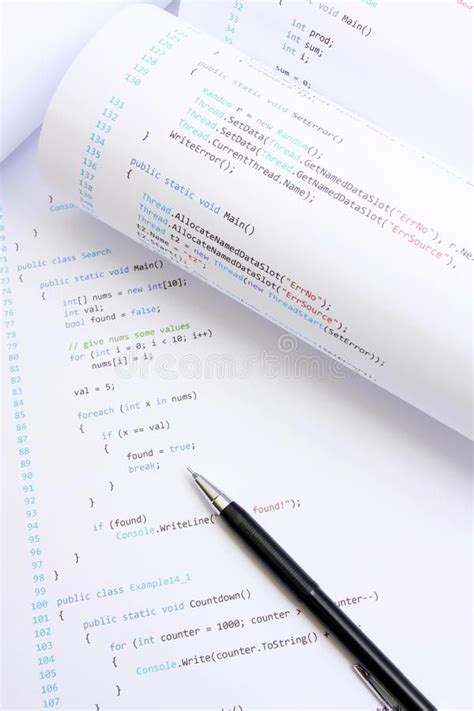 public static void Main()
{
int prod;
int sum;
int i;
sum = 0;
129
130
131
132
133
134
135
136
137
138
139
public static void SetError()
{
Random r = new Random();
Thread.SetData(Thread.GetNamedDataSlot("ErrNo"), r.Ne
Thread.SetData(Thread.GetNamedDataSlot("ErrSource"),
Thread.CurrentThread.Name);
WriteError();
}
public static void Main()
{
Thread.AllocateNamedDataSlot("ErrNo");
Thread.AllocateNamedDataSlot("ErrSource");
Thread t2 = new Thread(new ThreadStart(SetError));
t2.Name = "t2";
}
Conso
}
72 public class Search
73 public static void Main()
{
int[] nums = new int[10];
int val;
bool found = false;
// give nums some values
for (int i = 0; i < 10; i++)
nums[i] = i;
val = 5;
83 foreach (int x in nums)
84 {
85 if (x == val)
86 {
87 found = true;
88 break;
89 }
90 }
91
92 if (found)
93 Console.WriteLine(" found!");
94 }
98 }
99
100 public class Example14_1
101 {
102 public static void Countdown()
103 {
104 for (int counter = 1000; counter > counter--)
105 {
106 Console.Write(counter.ToString() +
107 }
dreamstime